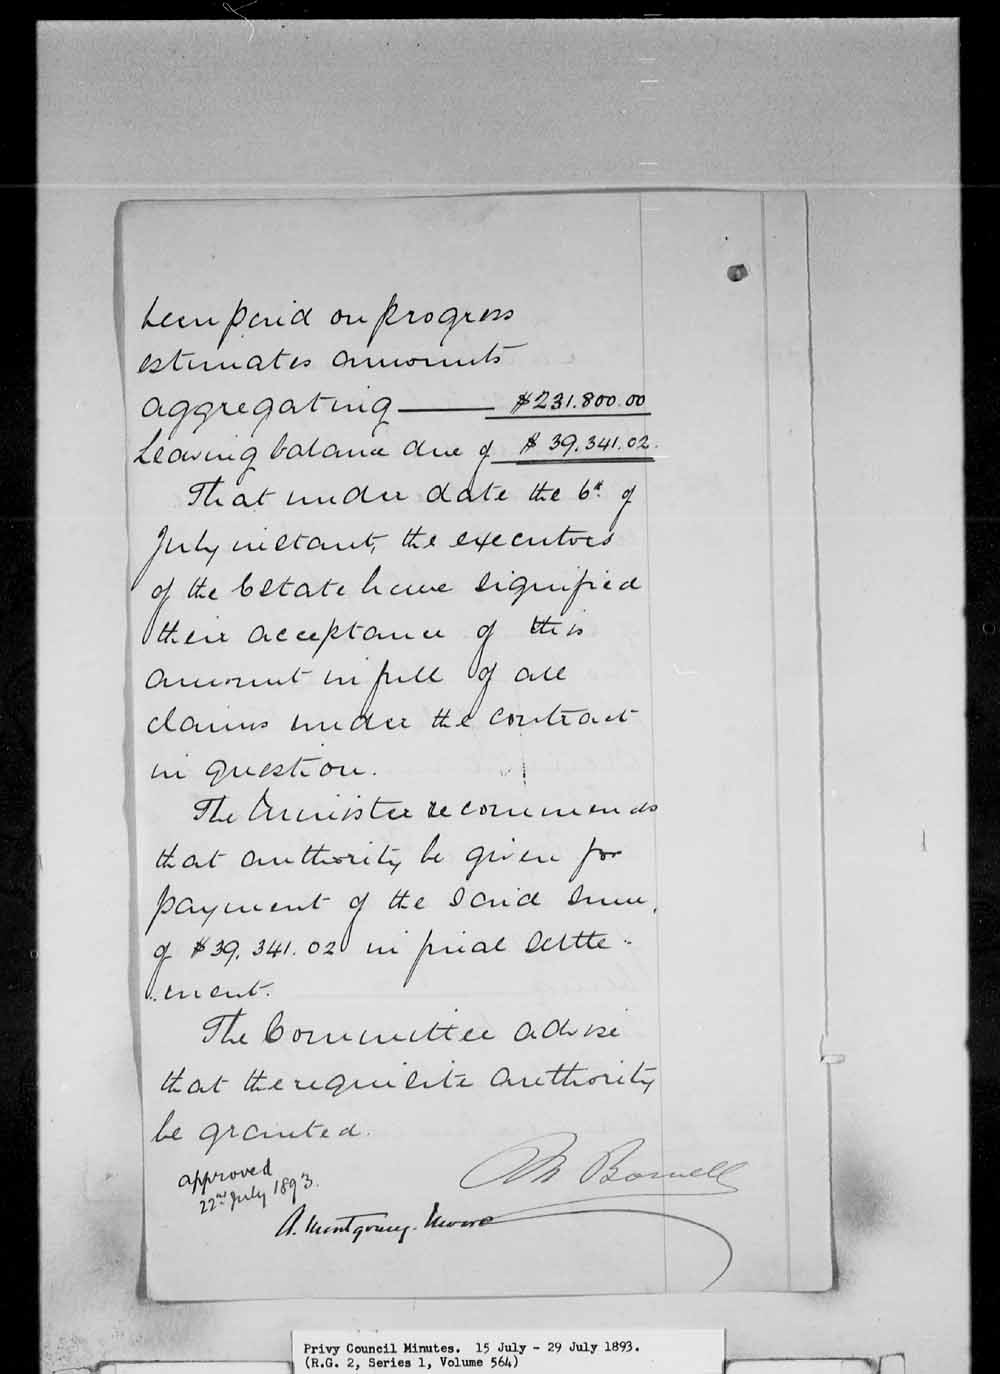 been paid on progress
estimates amounts
aggregating — $231.800.00
Leaving balance due of $39.341.02.
That under date the 6th of
July instant, the executors
of the Estate have signified
their acceptance of this
amount in full of all
claims under the contract
in question.
The Minister recommends
that authority be given for
payment of the said sum,
of $39,341.02 in final settle-
-ment.
The Committee advise
that the requisite authority
be granted.
M Bowell
approved
22nd July 1893.
A. Montgomery. Moore
Privy Council Minutes. 15 July - 29 July 1893.
(R.G. 2, Series 1, Volume 564)